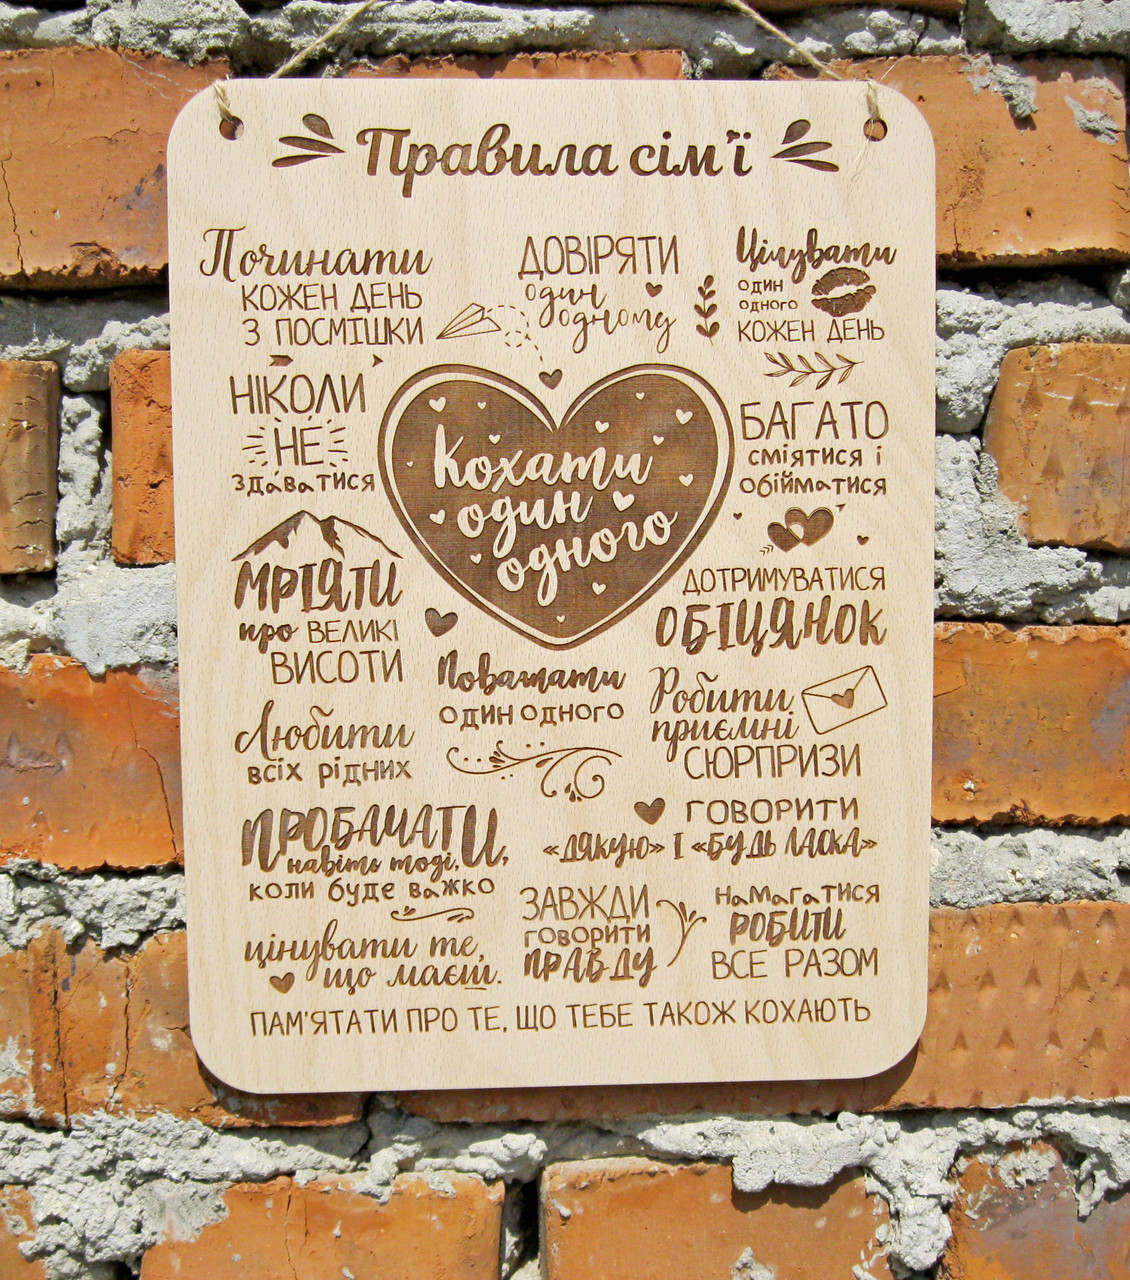 Правила сім'ї
Починати
КОЖЕН ДЕНЬ
З ПОСМІШКИ
ДОВІРЯТИ
один
одному
Цілувати
один
одного
КОЖЕН ДЕНЬ
НІКОЛИ
НЕ
здаватися
Кохати
один
одного
БАГАТО
сміятися і
обійматися
МРІЯТИ
про ВЕЛИКІ
ВИСОТИ
ДОТРИМУВАТИСЯ
ОБІЦЯНОК
Поважати
один одного
Робити
приємні
СЮРПРИЗИ
Любити
всіх рідних
ПРОБАЧАТИ,
навіть тоді,
коли буде важко
ГОВОРИТИ
«ДЯКУЮ» І «БУДЬ ЛАСКА»
цінувати те,
що маєш.
ЗАВЖДИ
говорити
ПРАВДУ
намагатися
РОБИТИ
ВСЕ РАЗОМ
ПАМ'ЯТАТИ ПРО ТЕ, ЩО ТЕБЕ ТАКОЖ КОХАЮТЬ